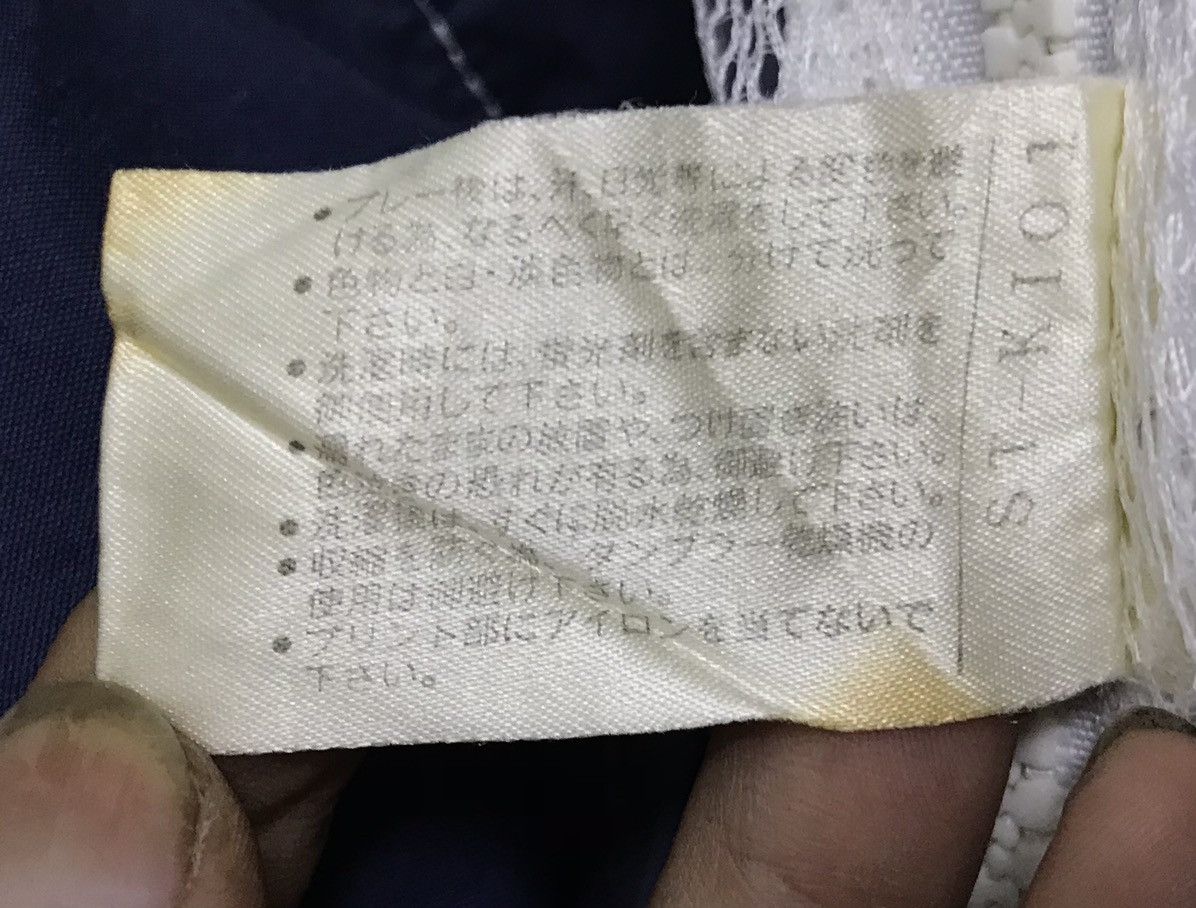 ●プレー後は、汗、日光等による変色を避
ける為、なるべく早く洗濯をして下さい。
●色物と白・淡色物とは、分けて洗って
下さい。
●洗濯時には、蛍光剤を含まない洗剤を
御使用して下さい。
●濡れたままの放置や、つけ置き洗いは、
の恐れが有る為、御避け下さい。
●洗濯後は、すぐに脱水乾燥して下さい。
●収縮を防ぐ為、タンブラー乾燥機の
使用は御避け下さい。
●プリント部にアイロンを当てないで
下さい。